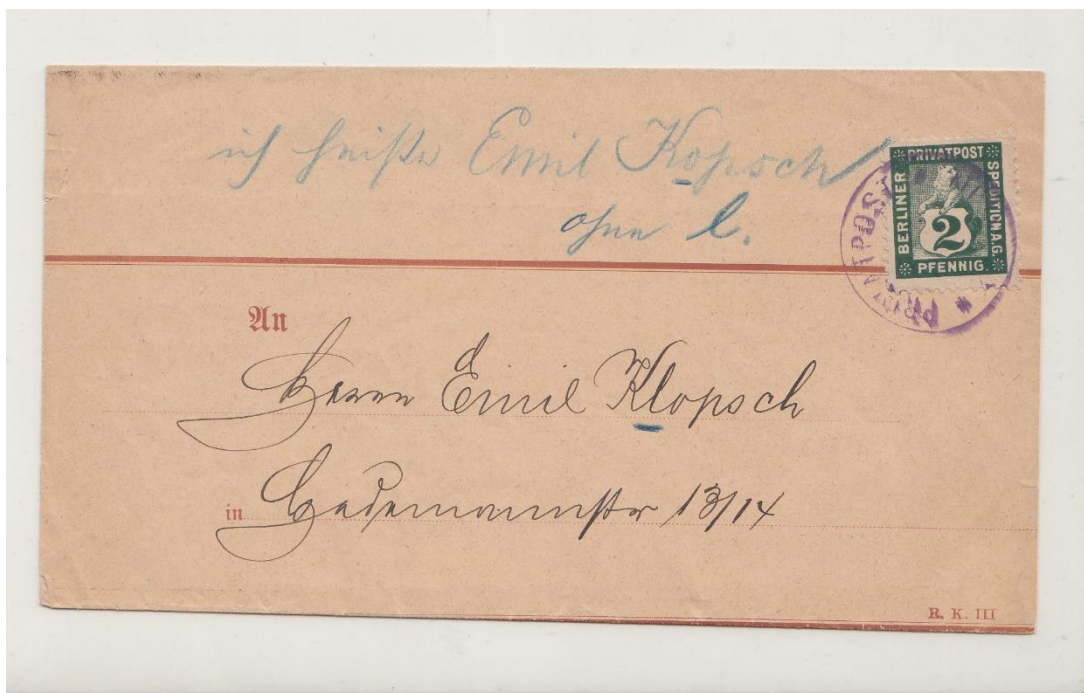 ich heiße Emil Kopsch
ohne l.
BERLINER PRIVATPOST SPEDITION A.G.
2
PFENNIG
PRIVATPOST
An
Herrn Emil Klopsch
in Hedemannstr 13/14
R. K. III